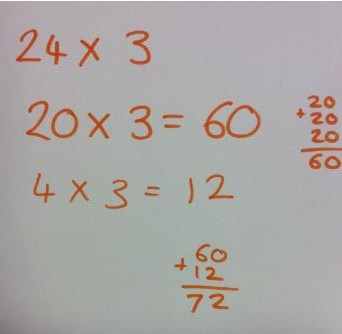 24 x 3
20 x 3 = 60
20
+ 20
20
60
4 x 3 = 12
60
+ 12
72